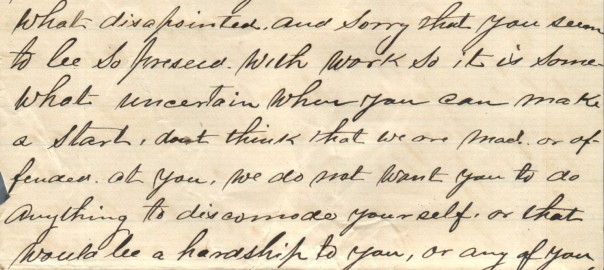 what disapointed. and sorry that you seem
to be so presed. with work so it is some
what uncertain when you can make
a start, dont think that we are mad. or of-
fended. at you, we do not want you to do
anything to discomode yourself. or that
would be a hardship to you, or any of you